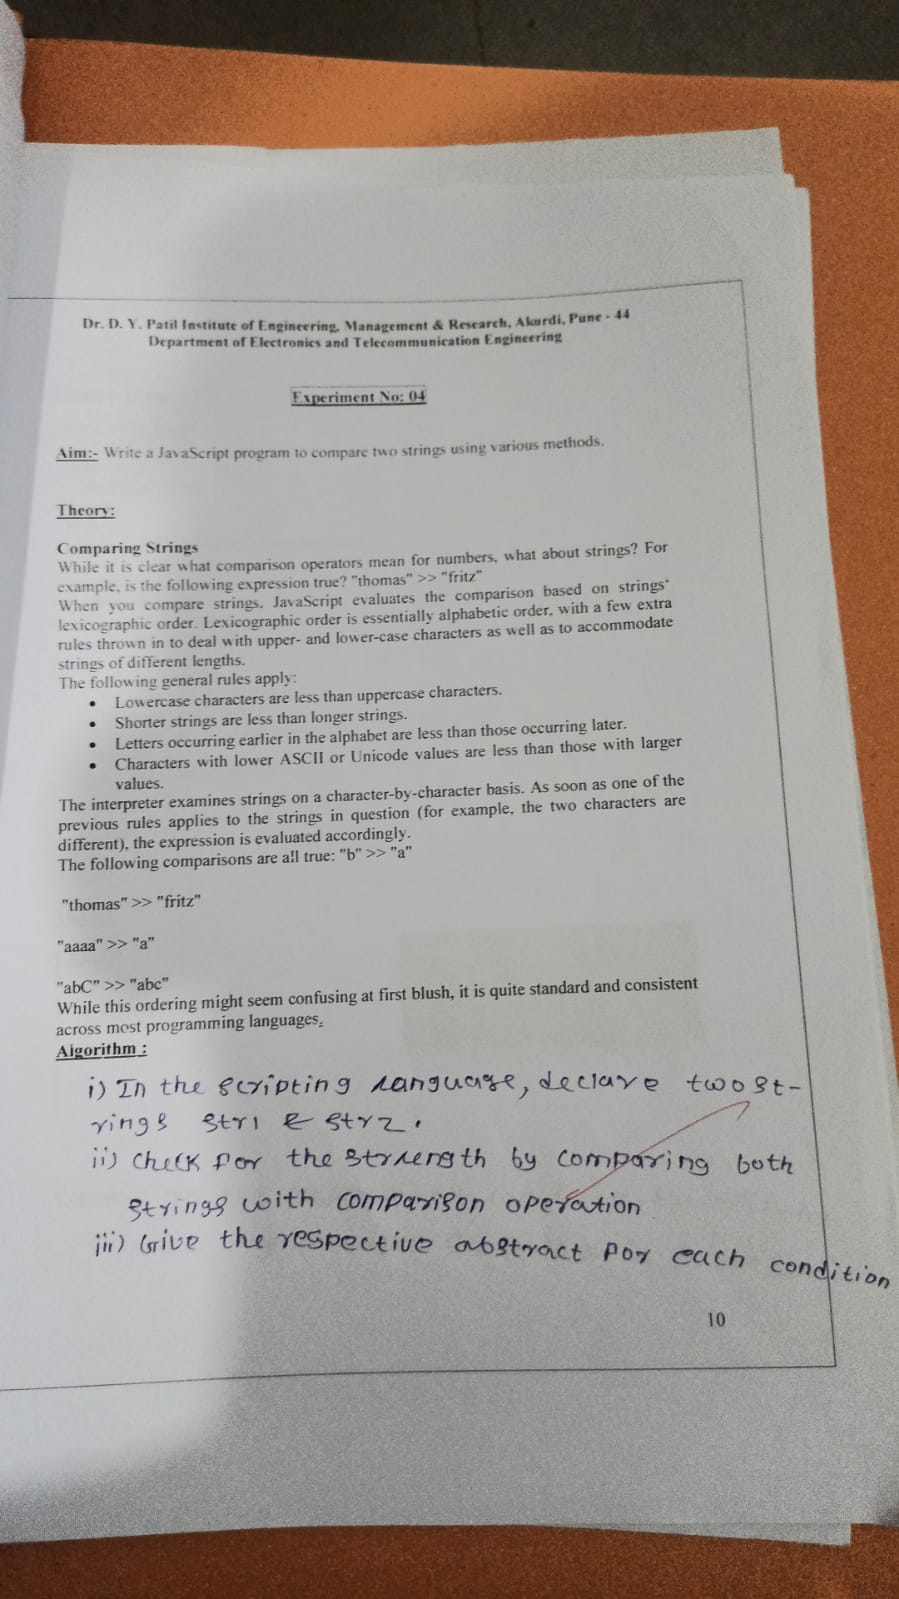 Dr. D. Y. Patil Institute of Engineering, Management & Research, Akurdi, Pune - 44
Department of Electronics and Telecommunication Engineering
Experiment No: 04
Aim:- Write a JavaScript program to compare two strings using various methods.
Theory:
Comparing Strings
While it is clear what comparison operators mean for numbers, what about strings? For
example, is the following expression true? "thomas" >> "fritz"
When you compare strings. JavaScript evaluates the comparison based on strings'
lexicographic order. Lexicographic order is essentially alphabetic order, with a few extra
rules thrown in to deal with upper- and lower-case characters as well as to accommodate
strings of different lengths.
The following general rules apply:
• Lowercase characters are less than uppercase characters.
• Shorter strings are less than longer strings.
• Letters occurring earlier in the alphabet are less than those occurring later.
• Characters with lower ASCII or Unicode values are less than those with larger
values.
The interpreter examines strings on a character-by-character basis. As soon as one of the
previous rules applies to the strings in question (for example, the two characters are
different), the expression is evaluated accordingly.
The following comparisons are all true: "b" >> "a"
"thomas" >> "fritz"
"aaaa" >> "a"
"abC" >> "abc"
While this ordering might seem confusing at first blush, it is quite standard and consistent
across most programming languages.
Algorithm :
i) In the scripting language, declare two st-
rings str1 & str2.
ii) Check for the by comparing both
strings with comparison operation
iii) Give the respective abstract for each condition
10